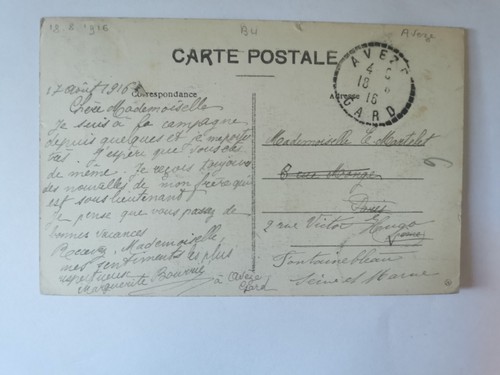 18.8.1916
BH
Avèze
CARTE POSTALE
AVEZE
4
18 8
16
GARD
Correspondance
Adresse
17 août 1916
Chère Mademoiselle
Je suis à la campagne
depuis quelques et je
pas. J'espère que vous
de même. Je reçois toujours
des nouvelles de mon frère qui
est sous lieutenant
Je pense que vous passez de
bonnes vacances
Recevez, Mademoiselle,
mes sentiments les plus
affectueux
Marguerite
à Avèze
Gard
Mademoiselle
6 rue
Paris
2 rue Victor Hugo
Fontainebleau
Seine et Marne